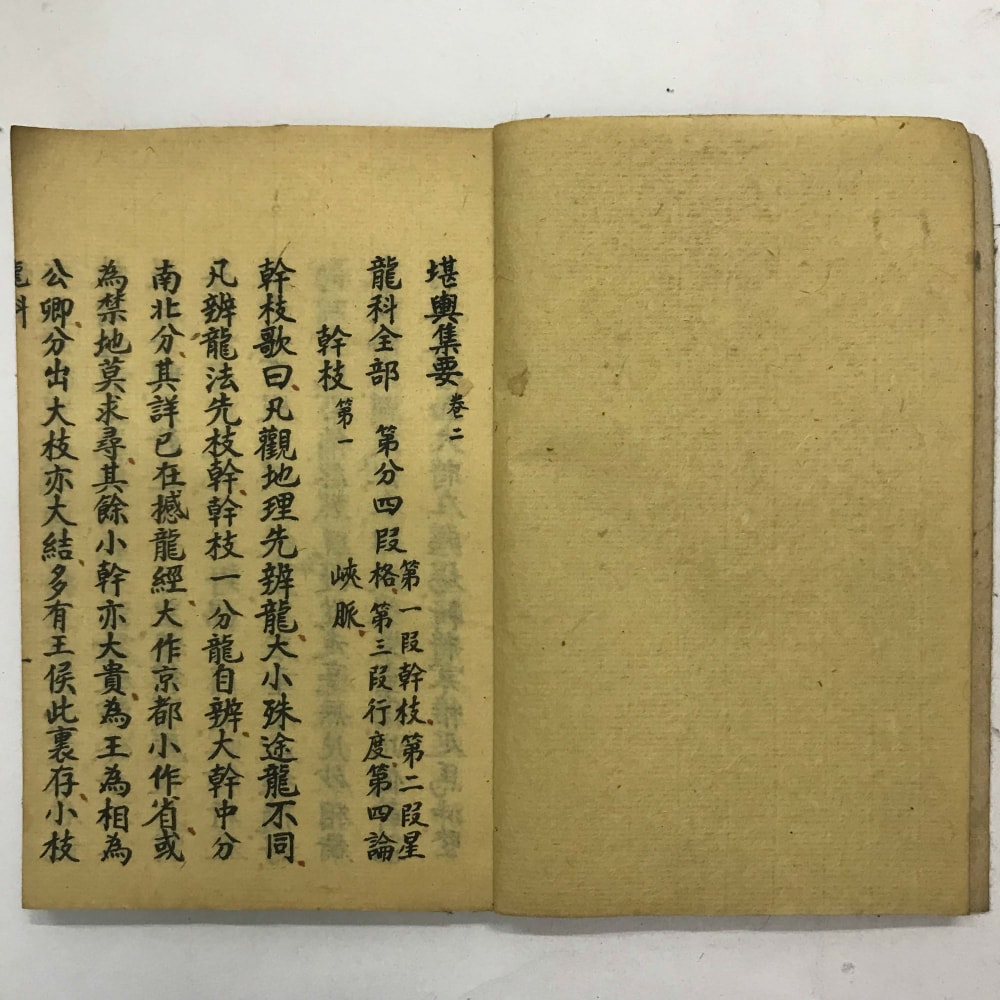 堪輿集要 卷二
龍科全部 第分四段 第一段幹枝第二段星格第三段行度第四論峽脈
幹枝 第一
幹枝歌曰凡觀地理先辨龍大小殊途龍不同
凡辨龍法先枝幹幹枝一分龍自辨大幹中分
南北分其詳已在撼龍經大作京都小作省或
為禁地莫求尋其餘小幹亦大貴為王為相為
公卿分出大枝亦大結多有王侯此裏存小枝
龍科
一